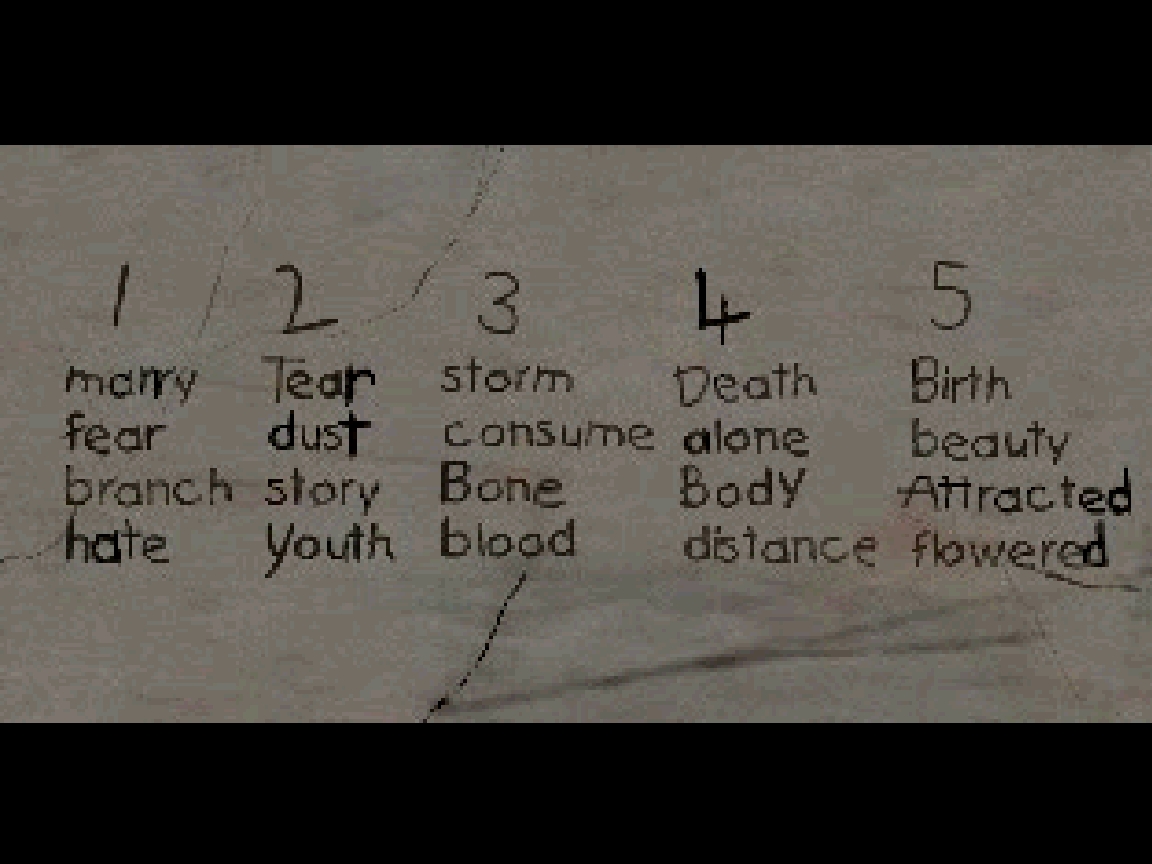 1 2 3 4 5
marry Tear storm Death Birth
fear dust consume alone beauty
branch story Bone Body Attracted
hate youth blood distance flowered